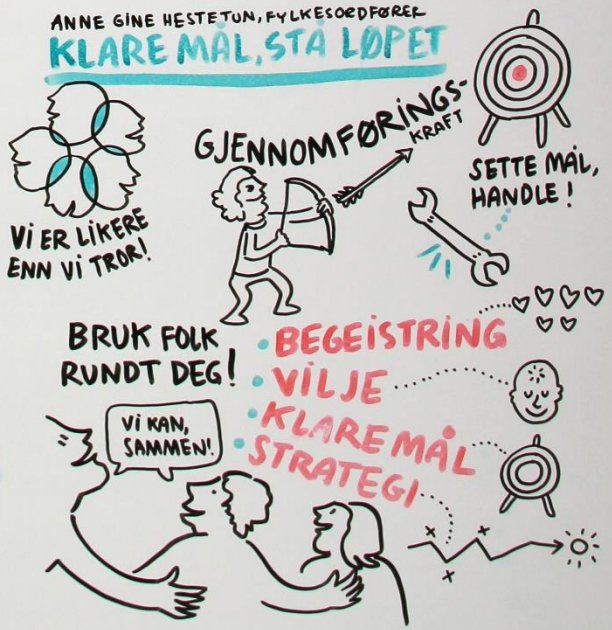 ANNE GINE HESTETUN, FYLKESORDFØRER
KLARE MÅL, STÅ LØPET
GJENNOMFØRINGS-
KRAFT
SETTE MÅL,
HANDLE!
VI ER LIKERE
ENN VI TROR!
BRUK FOLK
RUNDT DEG!
• BEGEISTRING
• VILJE
• KLARE MÅL
• STRATEGI
VI KAN,
SAMMEN!